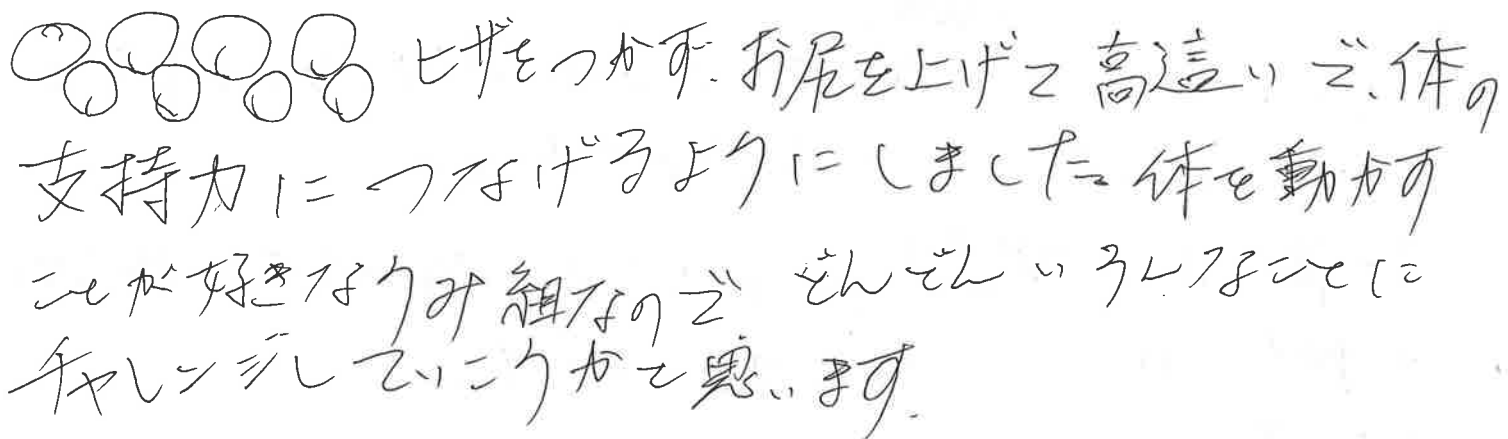 ヒザをつかず、お尻を上げて高這いで、体の
支持力につなげるようにしました。体を動かす
ことが好きなうみ組なので どんどんいろんなことに
チャレンジしていこうかと思います。